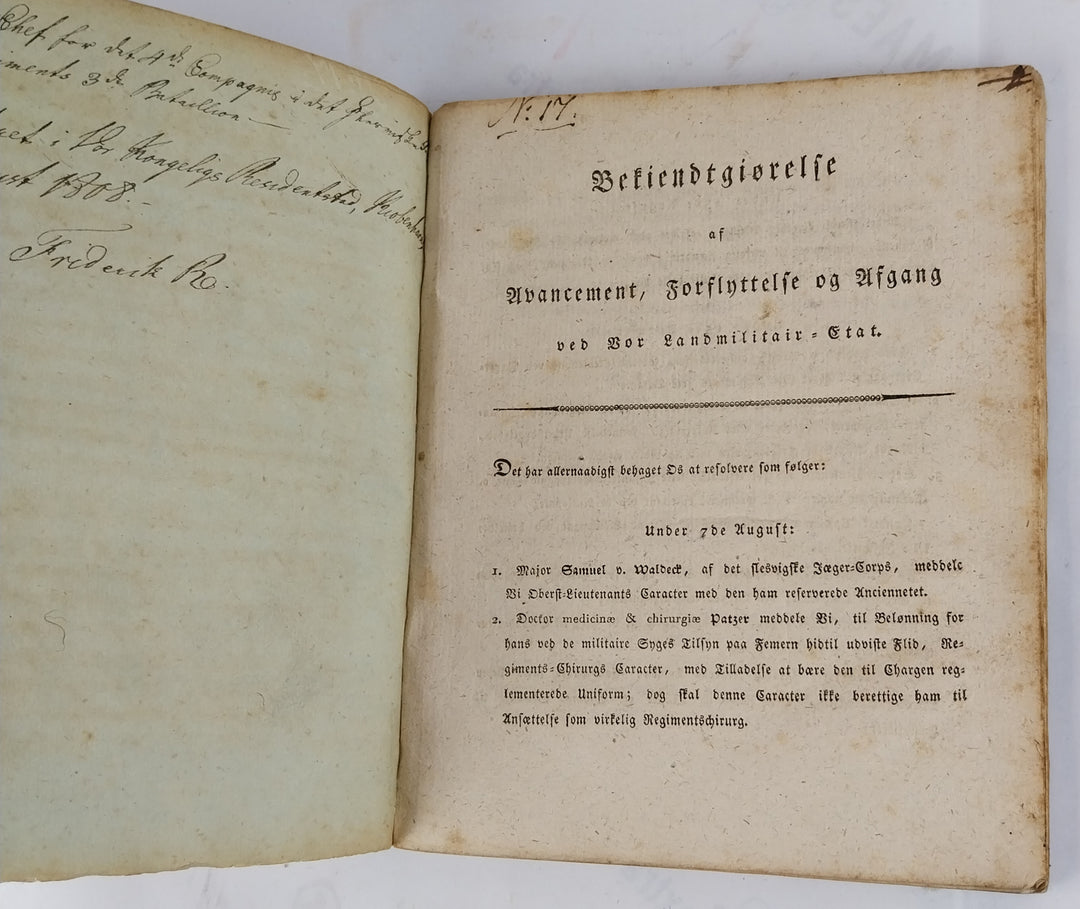 Chef for det 4de Compagnie i det
3de Bataillon —
i Vor Kongelige Residentsstad, Kiøbenhavn
1808.—
Friderik R.
No: 17.
Bekiendtgiørelse
af
Avancement, Forflyttelse og Afgang
ved Vor Landmilitair-Etat.
Det har allernaadigst behaget Os at resolvere som følger:
Under 7de August:
1. Major Samuel v. Waldeck, af det slesvigske Jæger-Corps, meddele
Vi Oberst-Lieutenants Caracter med den ham reserverede Anciennetet.
2. Doctor medicinæ & chirurgiæ Patzer meddele Vi, til Belønning for
hans ved de militaire Syges Tilsyn paa Femern hidtil udviste Flid, Re-
giments-Chirurgs Caracter, med Tilladelse at bære den til Chargen reg-
lementerede Uniform; dog skal denne Caracter ikke berettige ham til
Ansættelse som virkelig Regimentschirurg.